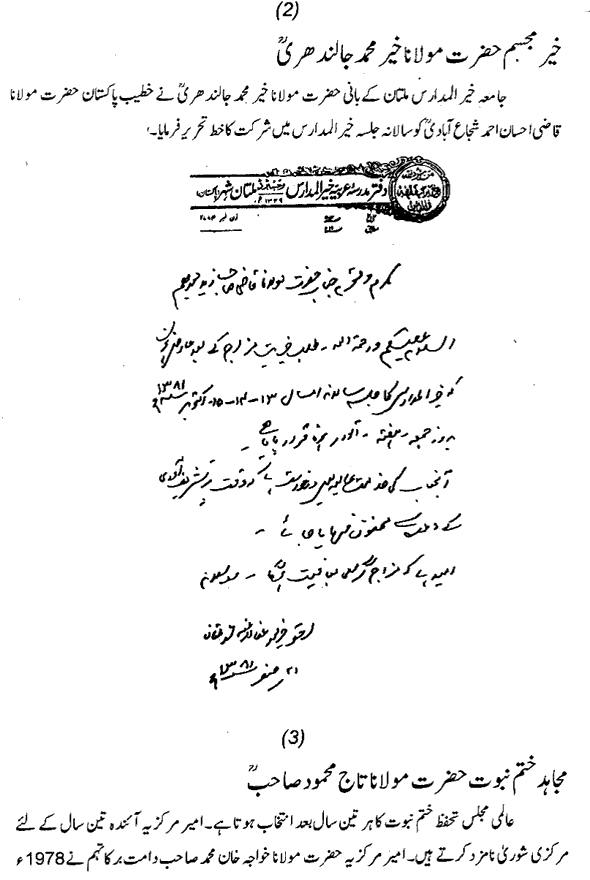 (2)
خیر مجسم حضرت مولانا خیر محمد جالندھریؒ
جامعہ خیر المدارس ملتان کے بانی حضرت مولانا خیر محمد جالندھریؒ نے خطیب پاکستان حضرت مولانا
قاضی احسان احمد شجاع آبادیؒ کو سالانہ جلسہ خیر المدارس میں شرکت کا خط تحریر فرمایا۔
دفتر مدرسہ عربیہ خیر المدارس ملتان شہر (پاکستان)
مکرم و محترم جناب حضرت مولانا قاضی صاحب
السلام علیکم ورحمۃ اللہ۔ طلب خیریت مزاج کے بعد
کہ خیر المدارس کا جلسہ سالانہ امسال ۱۳-۱۴-۱۵ اکتوبر
بروز جمعہ۔ ہفتہ۔ اتوار ہونا قرار پایا ہے۔
آنجناب کی خدمت ہے کہ وقت پر تشریف آوری
کے وعدہ سے فرمایا جائے۔
امید ہے کہ مزاج گرامی بعافیت ہوگا۔
۱۳۸۱ھ
(3)
مجاہد ختم نبوت حضرت مولانا تاج محمود صاحبؒ
عالمی مجلس تحفظ ختم نبوت کا ہر تین سال بعد انتخاب ہوتا ہے۔ امیر مرکزیہ آئندہ تین سال کے لئے
مرکزی شوریٰ نامزد کرتے ہیں۔ امیر مرکزیہ حضرت مولانا خواجہ خان محمد صاحب دامت برکاتہم نے 1978ء